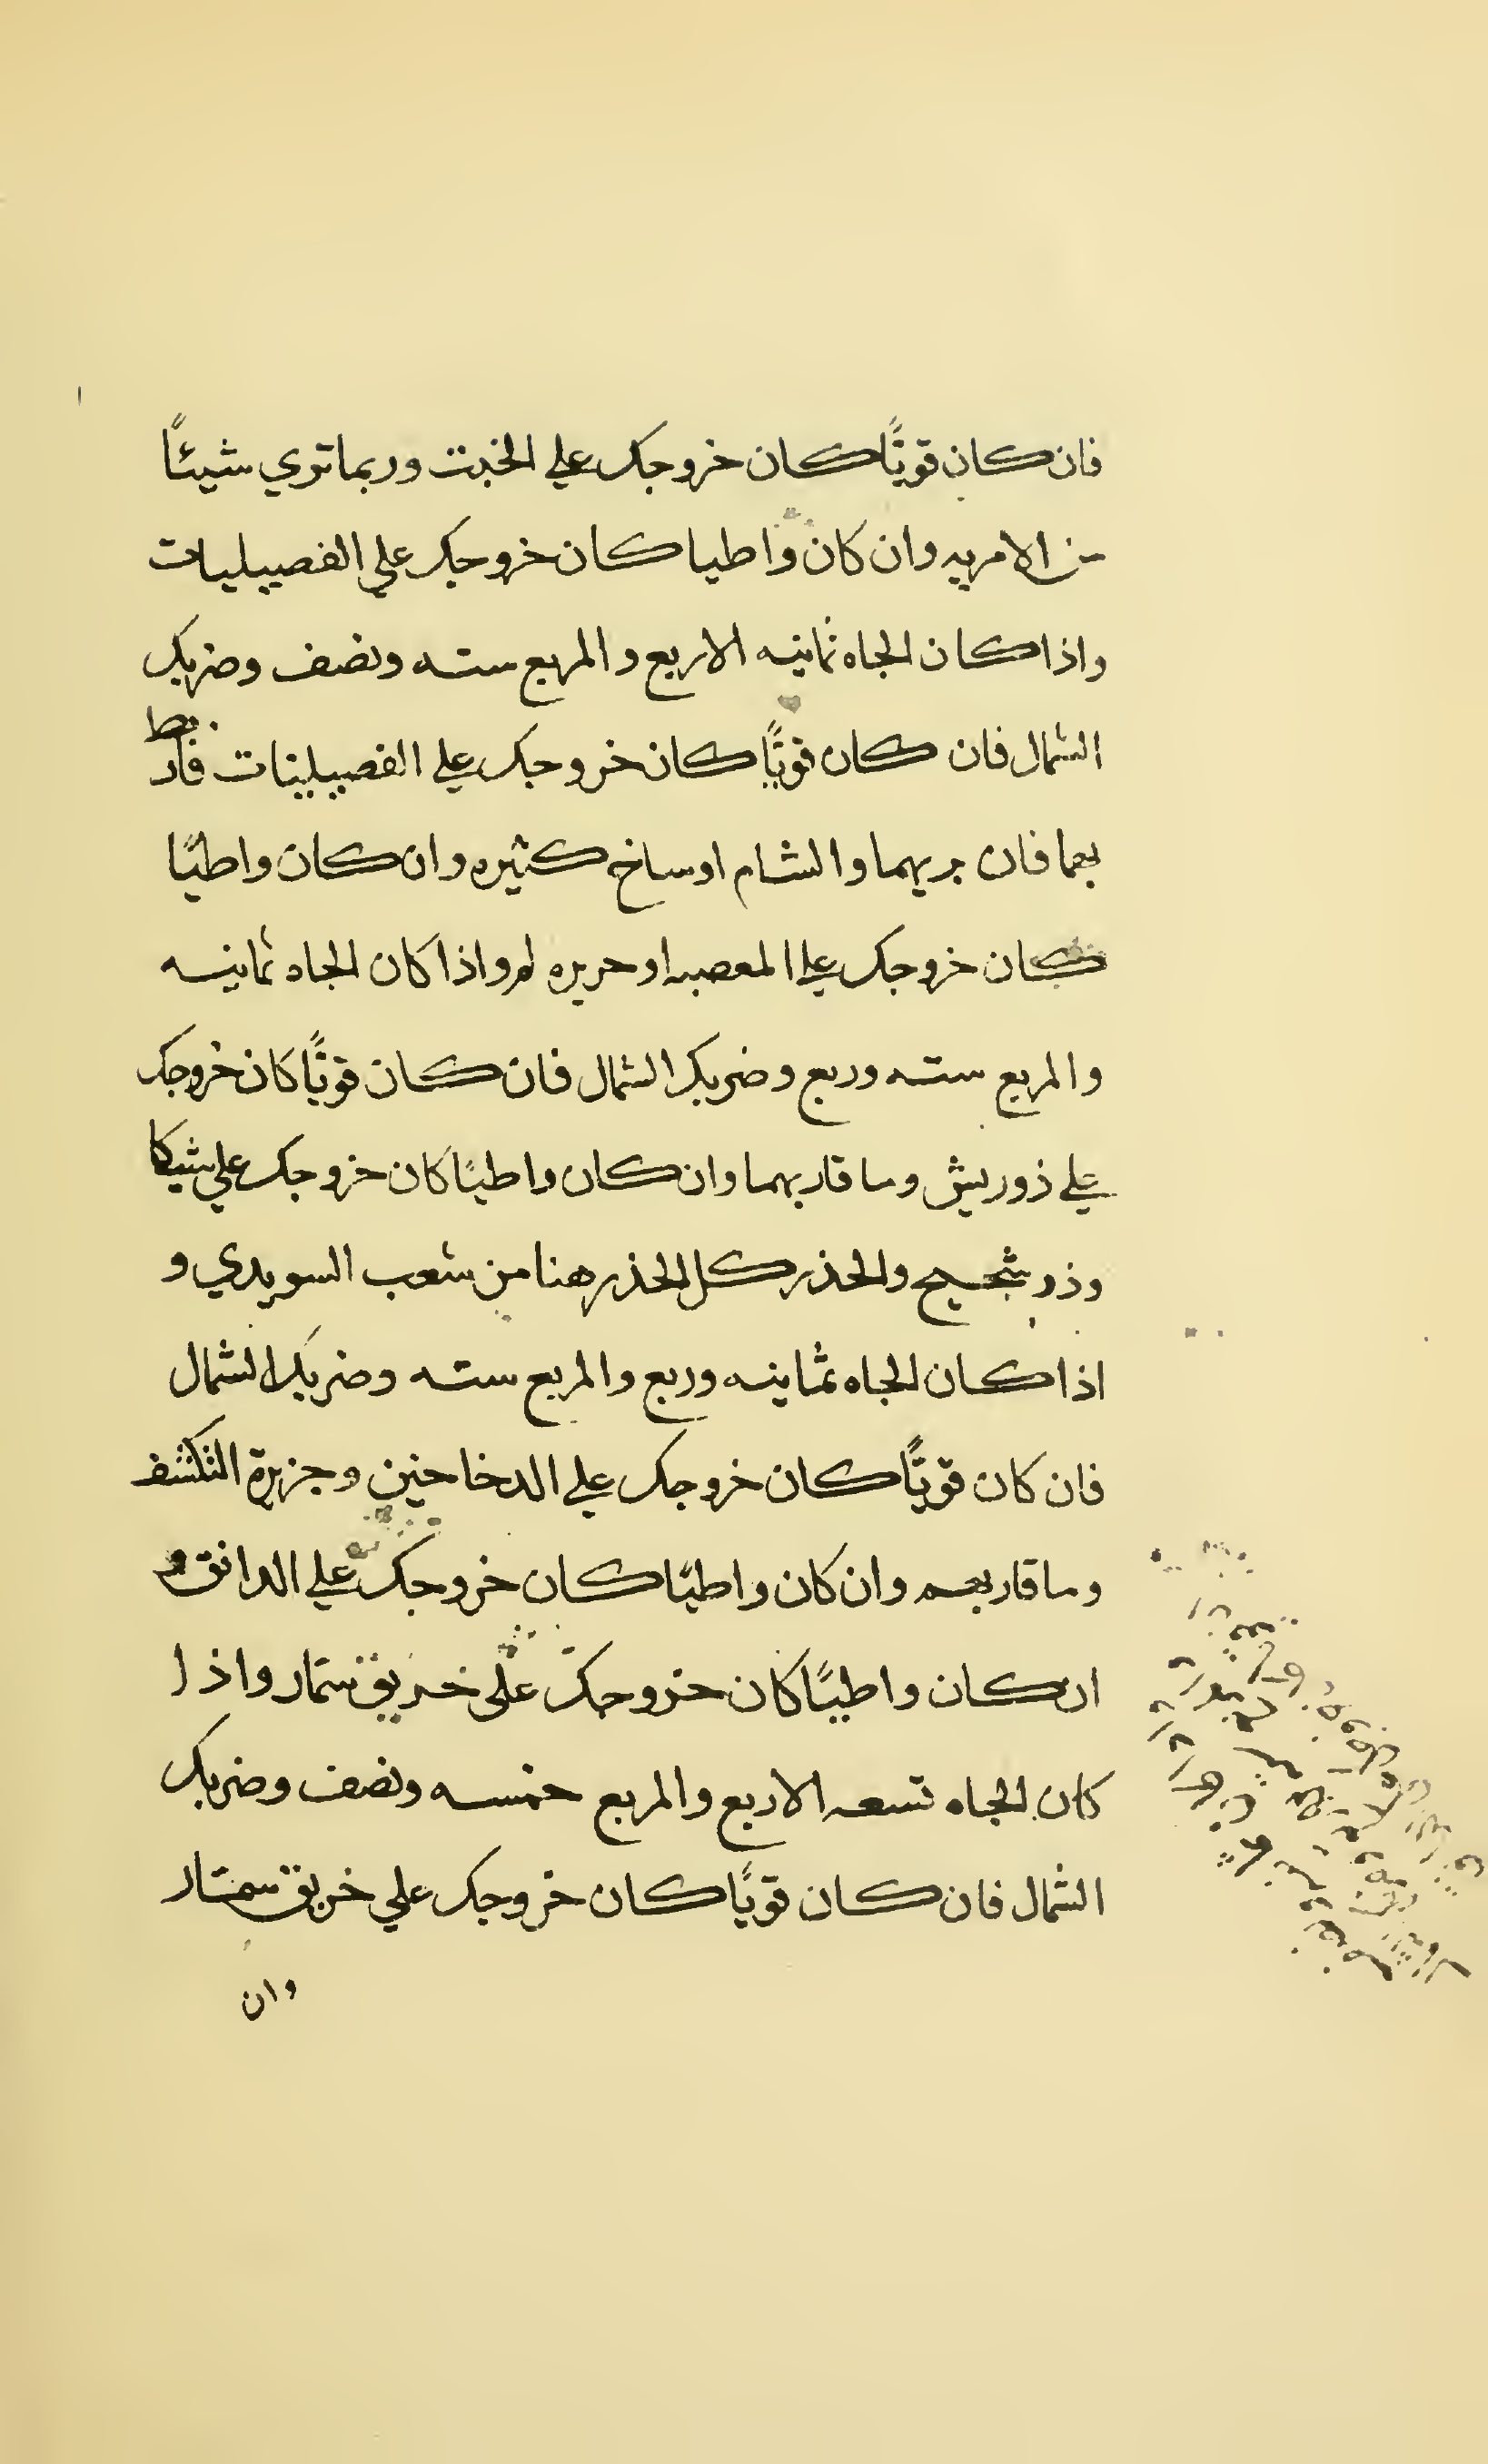 فان كان قويًا كان خروجك علي الخبت وربما تري شيئًا
من الامريه وان كان واطيا كان خروجك علي الفصيليات
واذا كان الجاه ثمانيه الاربع والمربع سته ونصف وضربك
الشمال فان كان قويًا كان خروجك علي الفصيلينات فاربط
بهما فان بريهما والشام اوساخ كثيره وان كان واطيًا
كان خروجك علي المعصبه او حريره لمر واذا كان الجاه ثمانيه
والمربع سته وربع وضربك الشمال فان كان قويًا كان خروجك
علي ذوريش وما قاربهما وان كان واطيًا كان خروجك علي شيكا
وذو شجيج والحذر كل الحذر هنا من شعب السويدي و
اذا كان الجاه ثمانيه وربع والمربع سته وضربك الشمال
فان كان قويًا كان خروجك علي الدخاحنين وجزيرة النكشف
وما قاربهم وان كان واطيًا كان خروجك علي الدانق و
ان كان واطيًا كان خروجك علي خريق سمار واذا
كان الجاه تسعه الاربع والمربع خمسه ونصف وضربك
الشمال فان كان قويًا كان خروجك علي خريق سمار
وان